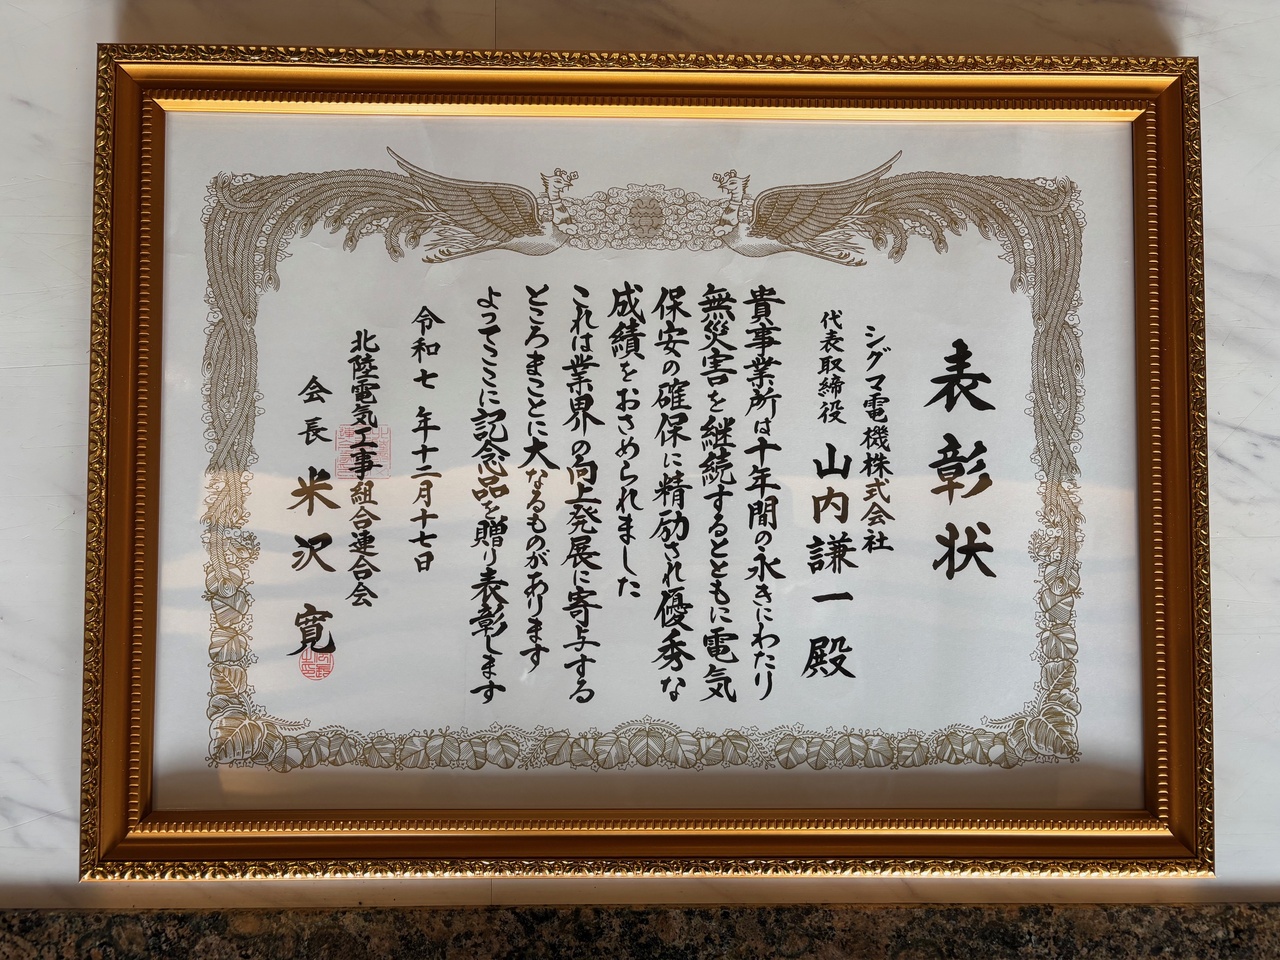 表彰状
シグマ電機株式会社
代表取締役 山内謙一殿
貴事業所は十年間の永きにわたり
無災害を継続するとともに電気
保安の確保に精励され優秀な
成績をおさめられました
これは業界の向上発展に寄与する
ところまことに大なるものがあります
よってここに記念品を贈り表彰します
令和七年十二月十七日
北陸電気工事組合連合会
会長 米沢寛